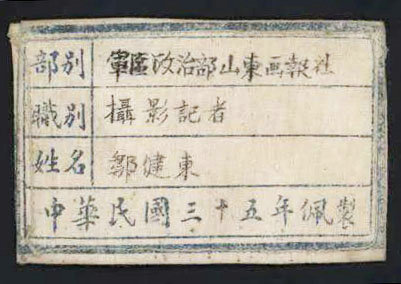 部別 軍區政治部山東画報社
職別 攝影記者
姓名 鄒健東
中華民國三十五年佩製